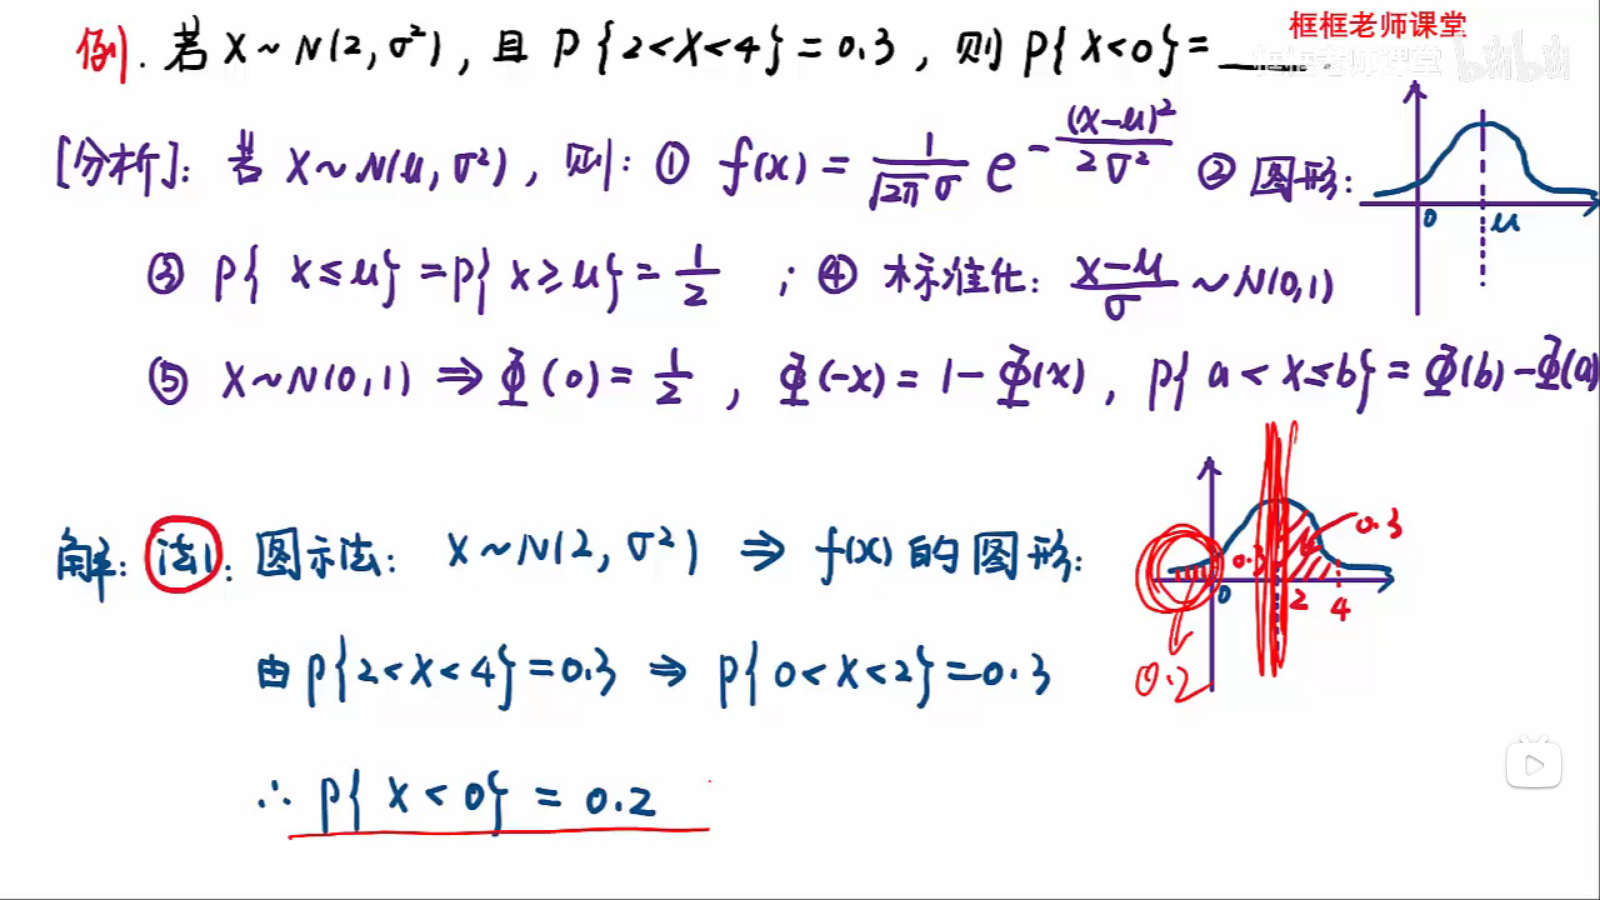 框框老师课堂
框框老师课堂 bilibili
例. 若 X~N(2,σ²), 且 P{2<X<4}=0.3, 则 P{X<0}=____.
[分析]: 若 X~N(μ,σ²), 则: ① f(x)=\frac{1}{\sqrt{2π}σ}e^{-\frac{(x-μ)²}{2σ²}} ② 图形:
0 μ
③ P{X≤μ}=P{X≥μ}=\frac{1}{2} ; ④ 标准化: \frac{X-μ}{σ}~N(0,1)
⑤ X~N(0,1) ⇒ Φ(0)=\frac{1}{2}, Φ(-x)=1-Φ(x), P{a<X≤b}=Φ(b)-Φ(a)
解: 法1: 图示法: X~N(2,σ²) ⇒ f(x)的图形:
0.3 0.3
0 2 4
0.2
由P{2<X<4}=0.3 ⇒ P{0<X<2}=0.3
∴ P{X<0}=0.2